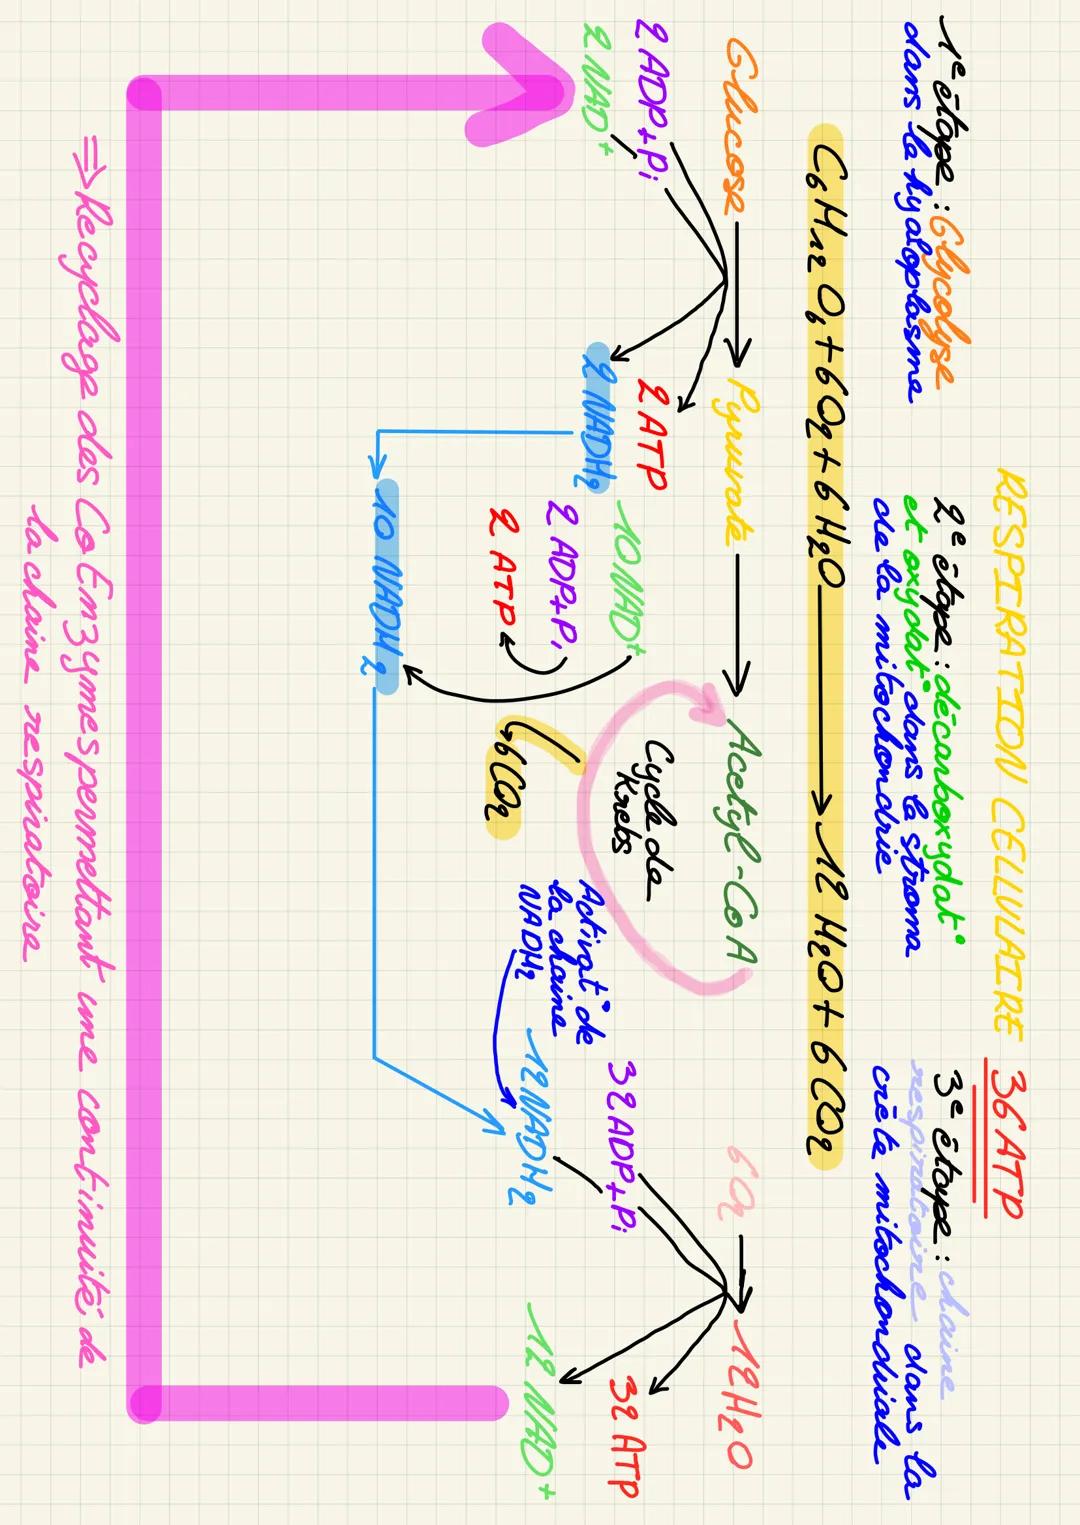 RESPIRATION CELLULAIRE 36 ATP
1e étape : Glycolyse
dans la hyaloplasme
2e étape : décarboxydat°
et oxydat° dans la stroma
de la mitochondrie
3e étape : chaine
respiratoire dans la
crête mitochondriale
C6H12O6 + 6O2 + 6H2O → 12 H2O + 6 CO2
Glucose → Pyruvate → Acetyl-CoA
6O2 → 12H2O
2 ADP+Pi
2 NAD+
2 ATP
2 NADH2
10 NAD+
2 ADP+Pi
2 ATP
10 NADH2
Cycle de
Krebs
6CO2
Activat° de
la chaine
NADH2
32 ADP+Pi
12 NADH2
32 ATP
12 NAD+
⇒ Recyclage des CoEnzymes permettant une continuité de
la chaine respiratoire